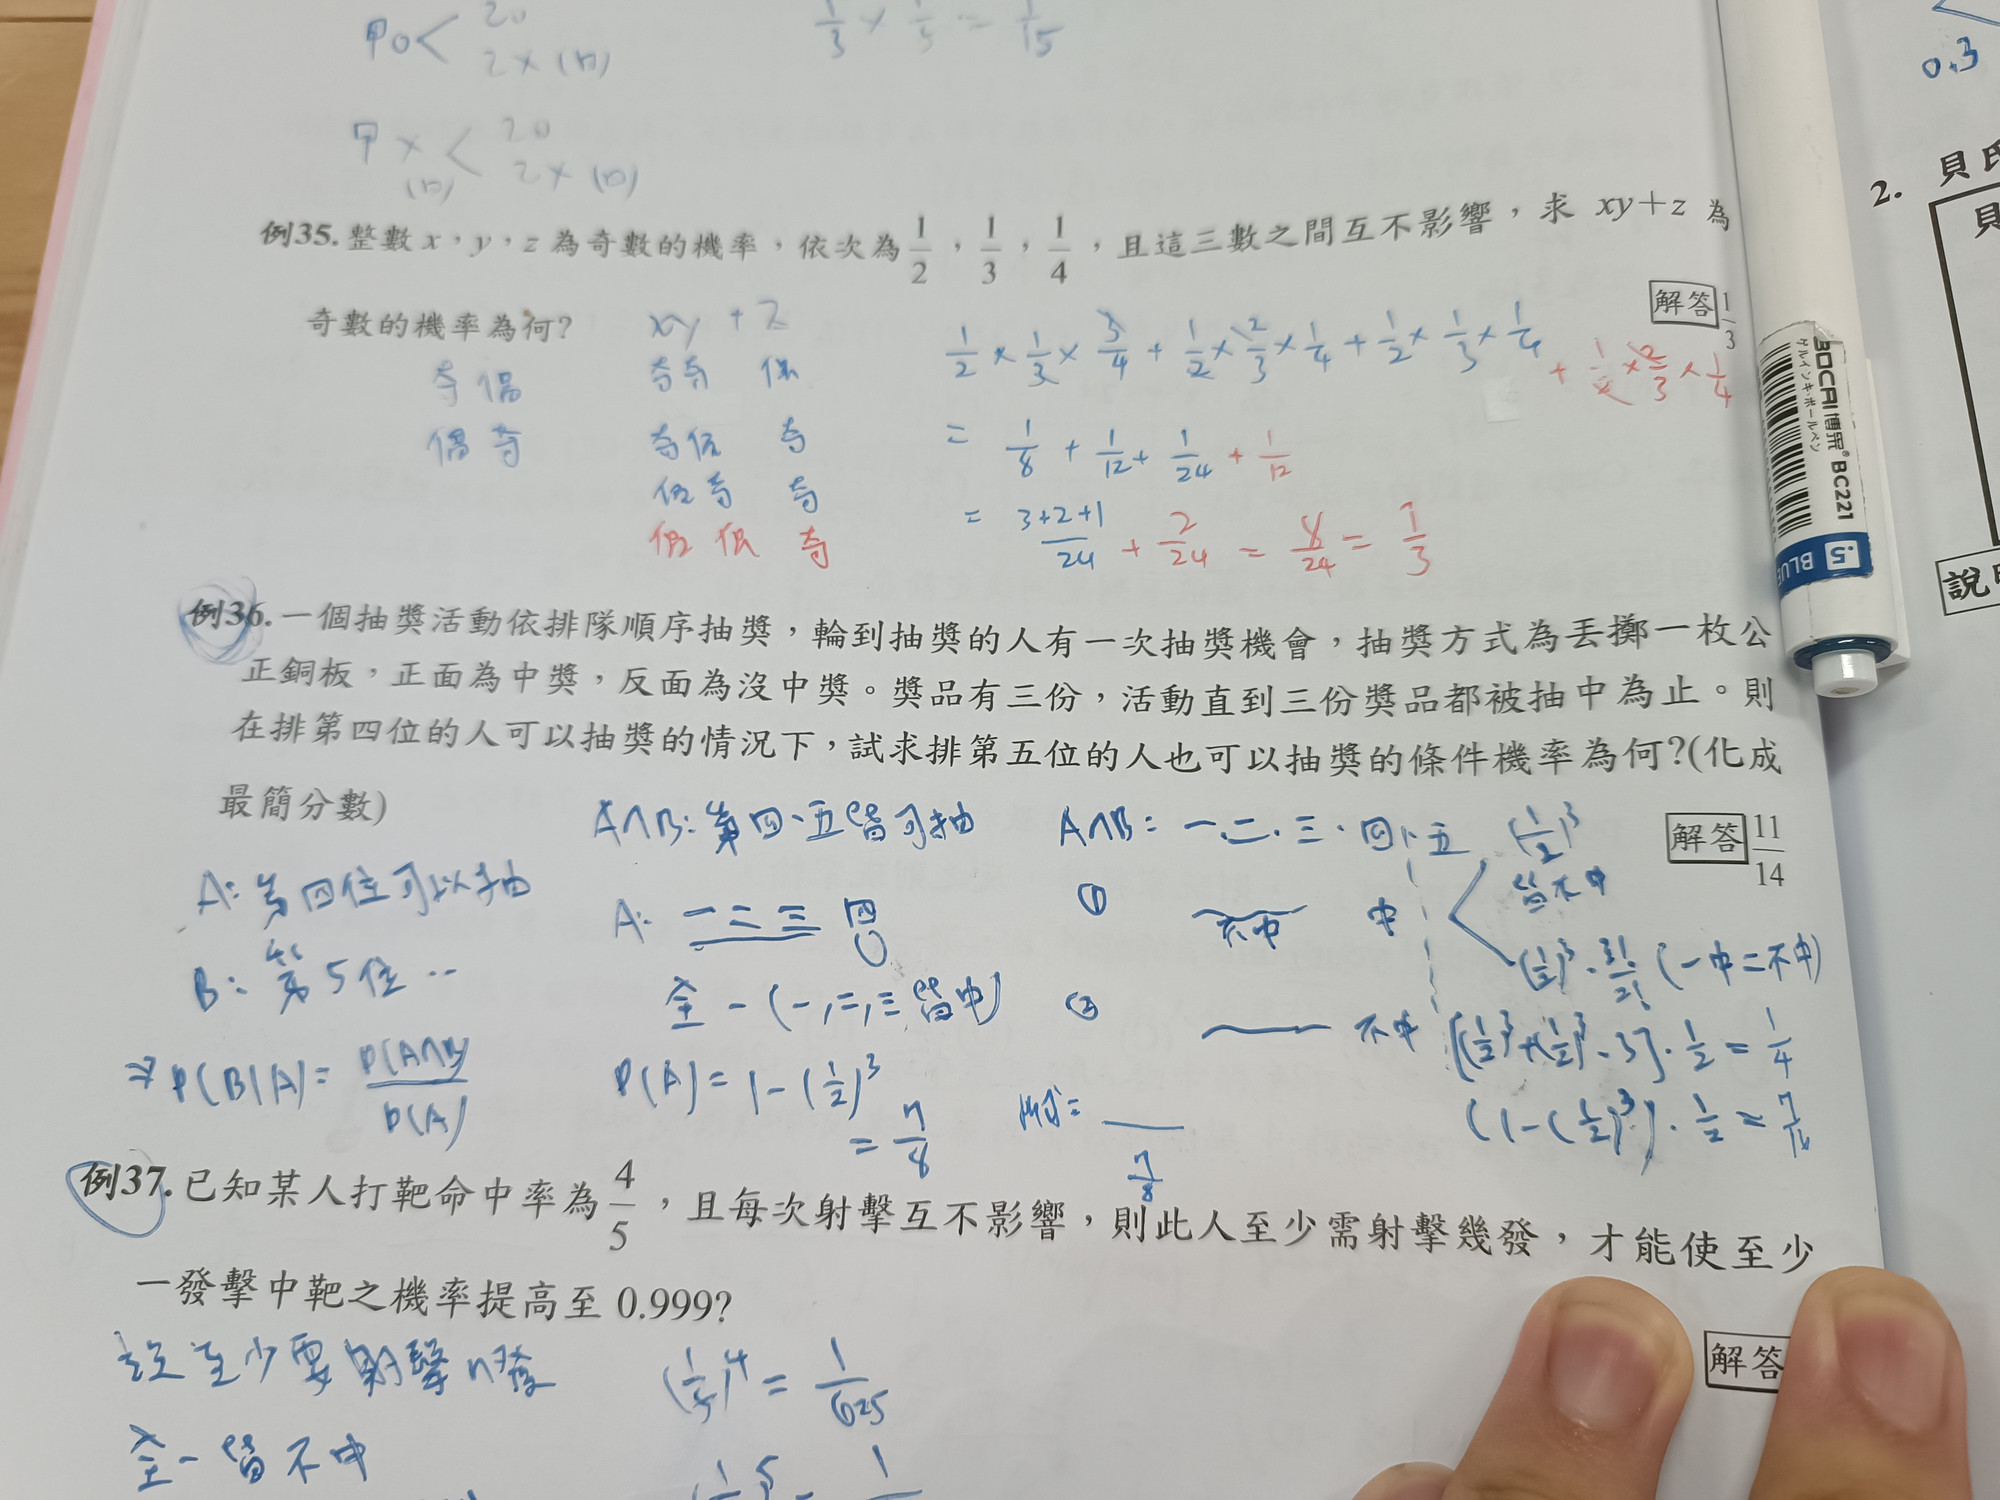 甲o< 2o
2x(中)
1/3 × 1/5 = 1/15
甲x(中)< 2o
2x(中)
0.3
例35.整數x，y，z為奇數的機率，依次為1/2，1/3，1/4，且這三數之間互不影響，求 xy+z 為
奇數的機率為何?
解答 1/3
奇偶
偶奇
xy + z
奇奇 偶
奇偶 奇
偶奇 奇
偶偶 奇
1/2 × 1/3 × 3/4 + 1/2 × 2/3 × 1/4 + 1/2 × 1/3 × 1/4 + 1/2 × 2/3 × 1/4
= 1/8 + 1/12 + 1/24 + 1/12
= 3+2+1/24 + 2/24 = 8/24 = 1/3
例36.一個抽獎活動依排隊順序抽獎，輪到抽獎的人有一次抽獎機會，抽獎方式為丟擲一枚公
正銅板，正面為中獎，反面為沒中獎。獎品有三份，活動直到三份獎品都被抽中為止。則
在排第四位的人可以抽獎的情況下，試求排第五位的人也可以抽獎的條件機率為何?(化成
最簡分數)
解答 11/14
A:第四位可以抽
B:第5位..
⇒P(B|A)= P(A∩B)/P(A)
A∩B:第四、五皆可抽
A: 一二三 四
全-(一,二,三皆中)
P(A)=1-(1/2)^3
= 7/8
A∩B= 一.二.三.四、五
① 不中 中
(1/2)^3
皆不中
(1/2)^3·3!/2! (一中二不中)
② 不中
[(1/2)^3+(1/2)^3·3]·1/2 = 1/4
(1-(1/2)^3)·1/2 = 7/16
所求= /7/8
例37.已知某人打靶命中率為4/5，且每次射擊互不影響，則此人至少需射擊幾發，才能使至少
一發擊中靶之機率提高至 0.999?
解答
設至少要射擊n發
全-皆不中
(1/5)^4 = 1/625
BOCAI 博采® BC221
ゲルインキ・ボールペン
.5 BLUE
2. 貝